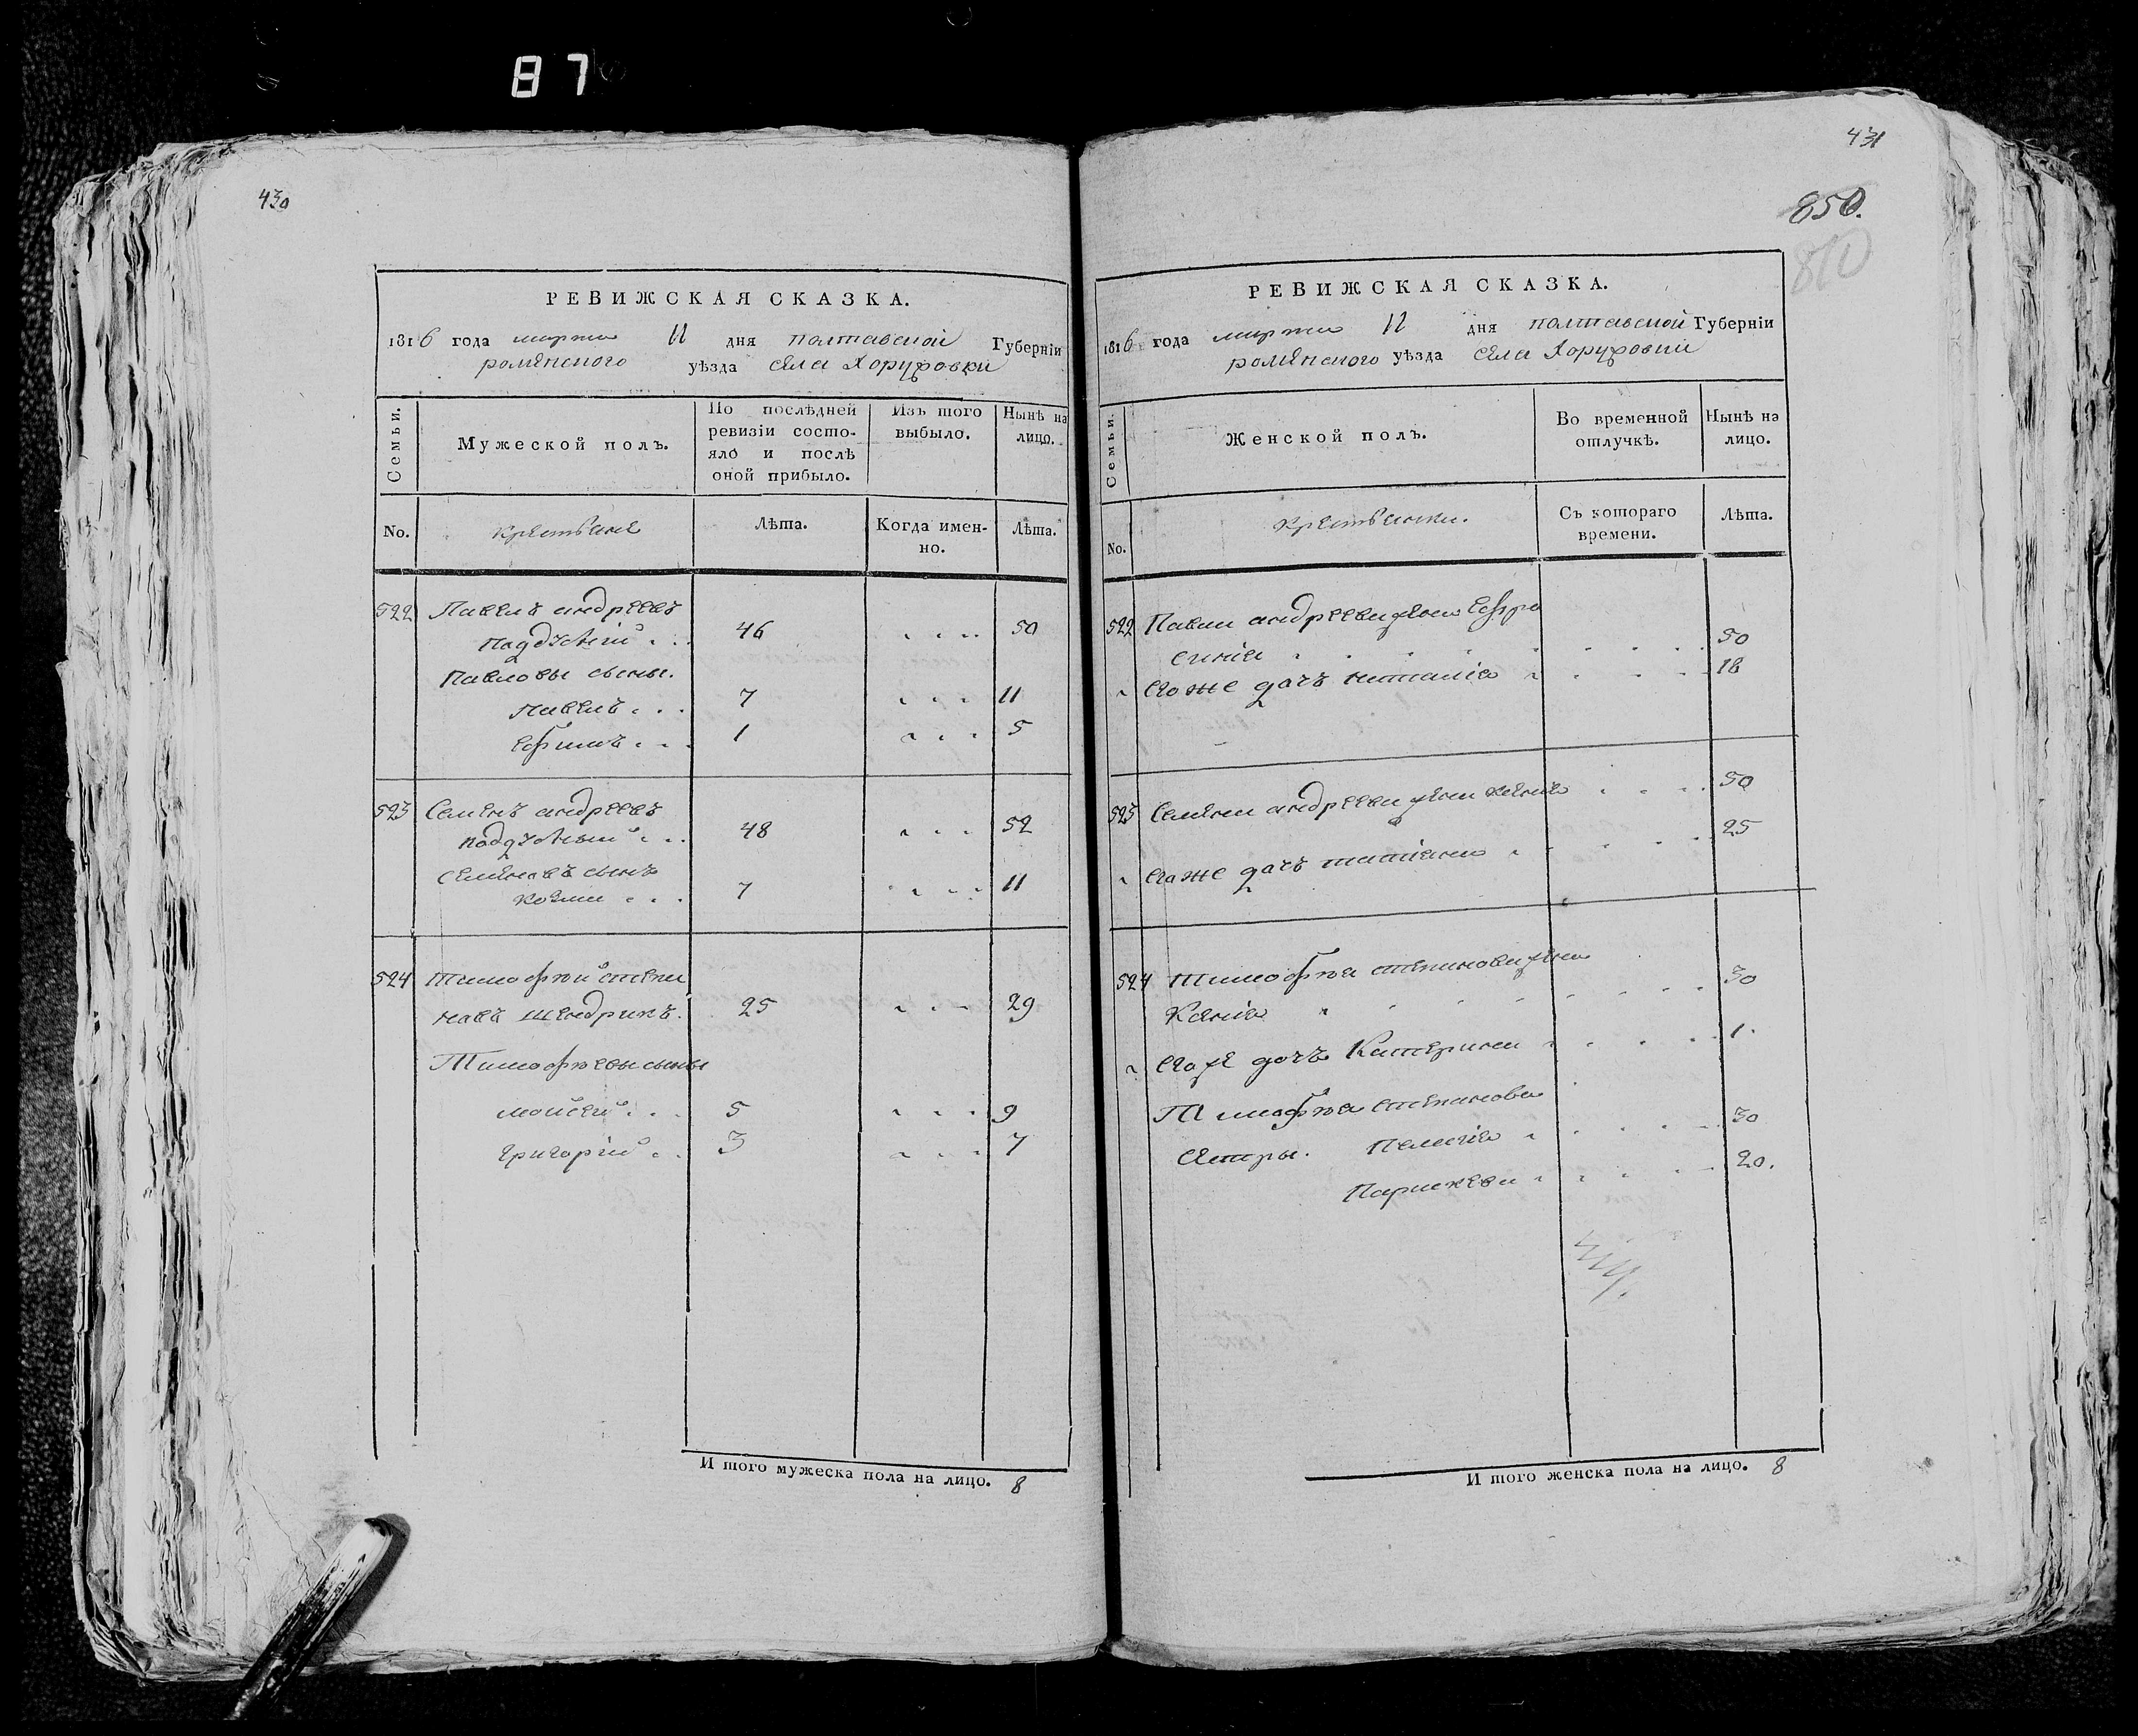 87
430
РЕВИЖСКАЯ СКАЗКА.
1816 года марта 11 дня полтавской Губерніи
роменского уѣзда села Хоружовки
Семьи.
Мужеской полъ.
По послѣдней ревизіи состояло и послѣ оной прибыло.
Изъ того выбыло.
Нынѣ на лицо.
No. крестьяне Лѣта. Когда именно. Лѣта.
522 Павелъ андреевъ
46 50
Павловы сыны.
Павелъ 7 11
Ефимъ 1 5
523 Семенъ андреевъ
48 52
Семеновъ сынъ
Козма 7 11
524 Тимофѣй степа
новъ шендрикъ. 25 29
Тимофѣевы сыны
Мойсей 5 9
григорій 3 7
И того мужеска пола на лицо. 8
431
850.
810
РЕВИЖСКАЯ СКАЗКА.
1816 года марта 11 дня полтавской Губерніи
роменского уѣзда села Хоружовки
Семьи.
Женской полъ.
Во временной отлучкѣ.
Нынѣ на лицо.
No. крестьянки. Съ котораго времени. Лѣта.
522 Павла андреева жена Ефро
синія 50
Его же дочь наталія 18
523 Семена андреева жена ксенія 50
Его же дочь татіяна 25
524 Тимофѣя степанова жена
Ксенія 30
Его же дочь Катерина 1.
Тимофѣя степанова
сестры. Пелагія 30
Параскева 20.
И того женска пола на лицо. 8